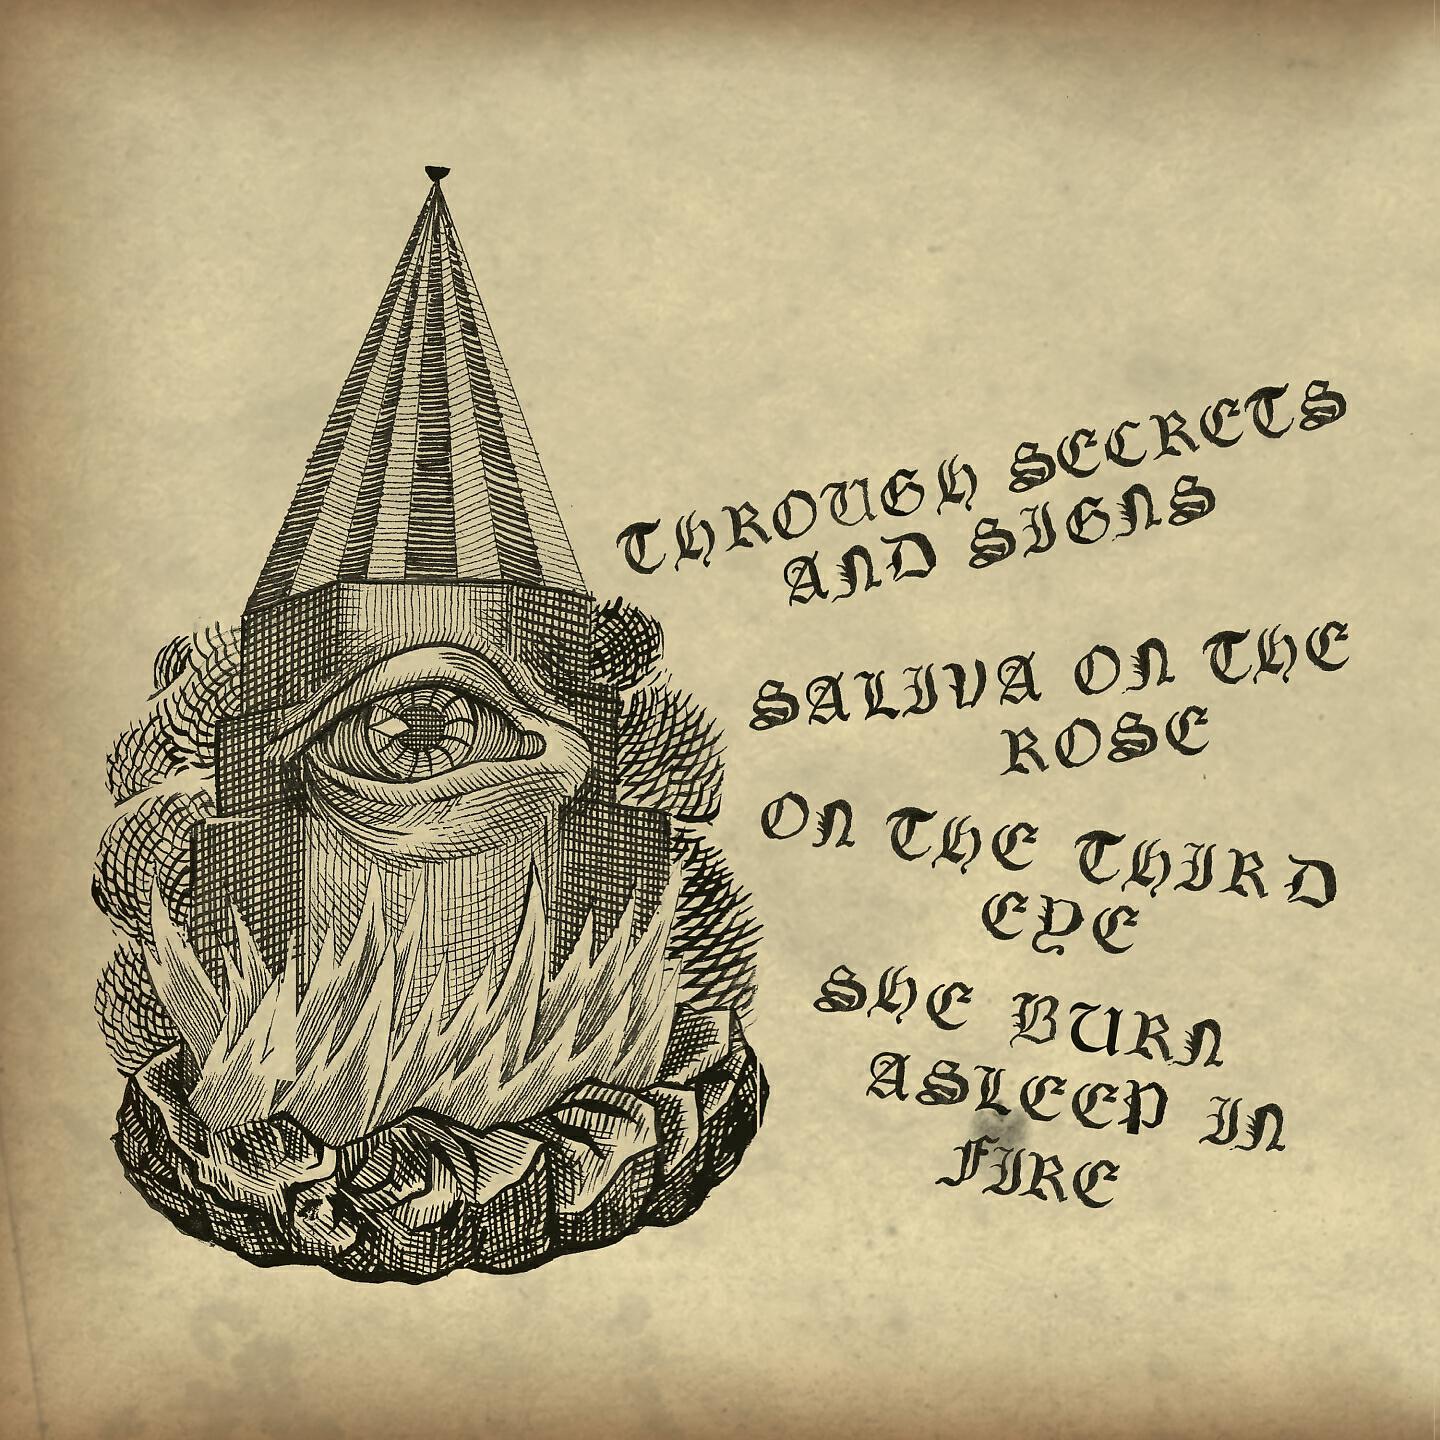 THROUGH SECRETS
AND SIGNS
SALIVA ON THE
ROSE
ON THE THIRD
EYE
SHE BURN
ASLEEP IN
FIRE